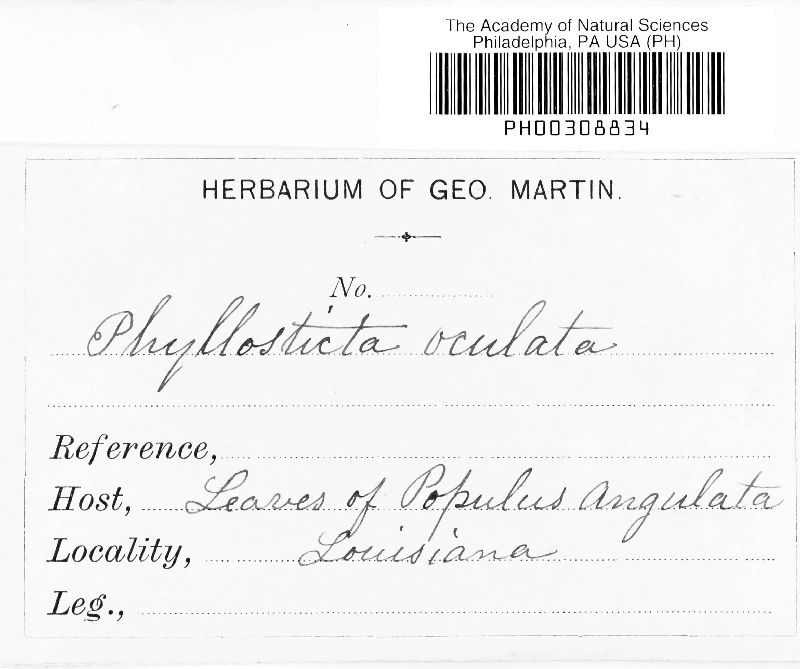 The Academy of Natural Sciences
Philadelphia, PA USA (PH)
PH00308834
HERBARIUM OF GEO. MARTIN.
No.
Phyllosticta oculata
Reference,
Host, Leaves of Populus angulata
Locality, Louisiana
Leg.,